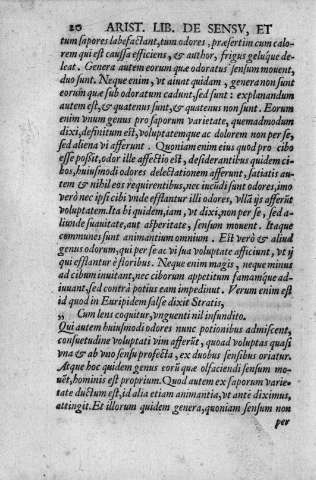 20 ARIST. LIB. DE SENSV, ET
tum sapores labefactant, tum odores, præsertim cum calo-
rem qui est caussa efficiens, & author, frigus geluque de-
leat. Genera autem eorum quæ odoratus sensum mouent,
duo sunt. Neque enim, vt aiunt quidam, genera non sunt
eorum quæ sub odoratum cadunt, sed sunt: explanandum
autem est, & quatenus sunt, & quatenus non sunt. Eorum
enim vnum genus pro saporum varietate, quemadmodum
dixi, definitum est, voluptatemque ac dolorem non per se,
sed aliena vi afferunt. Quoniam enim eius quod pro cibo
esse possit, odor ille affectio est, desiderantibus quidem ci-
bos, huiusmodi odores delectationem afferunt, satiatis au-
tem & nihil eos requirentibus, nec iucūdi sunt odores, imo
verò nec ipsi cibi vnde efflantur illi odores, vllā ijs afferūt
voluptatem. Ita hi quidem, iam, vt dixi, non per se, sed a-
liunde suauitate, aut asperitate, sensum mouent. Itaque
communes sunt animantium omnium. Est verò & aliud
genus odorum, qui per se ac vi sua voluptate afficiunt, vt ij
qui efflantur è floribus. Neque enim magis, neque minus
ad cibum inuitant, nec ciborum appetitum famamque ad-
iuuant, sed contrà potius eam impediunt. Verum enim est
id quod in Euripidem salse dixit Stratis,
„ Cum lens coquitur, vnguenti nil infundito.
Qui autem huiusmodi odores nunc potionibus admiscent,
consuetudine voluptati vim afferūt, quoad voluptas quasi
vna & ab vno sensu profecta, ex duobus sensibus oriatur.
Atque hoc quidem genus eorū quæ olfaciendi sensum mo-
uēt, hominis est proprium. Quod autem ex saporum varie-
tate ductum est, id alia etiam animantia, vt ante diximus,
attingit. Et illorum quidem genera, quoniam sensum non
per